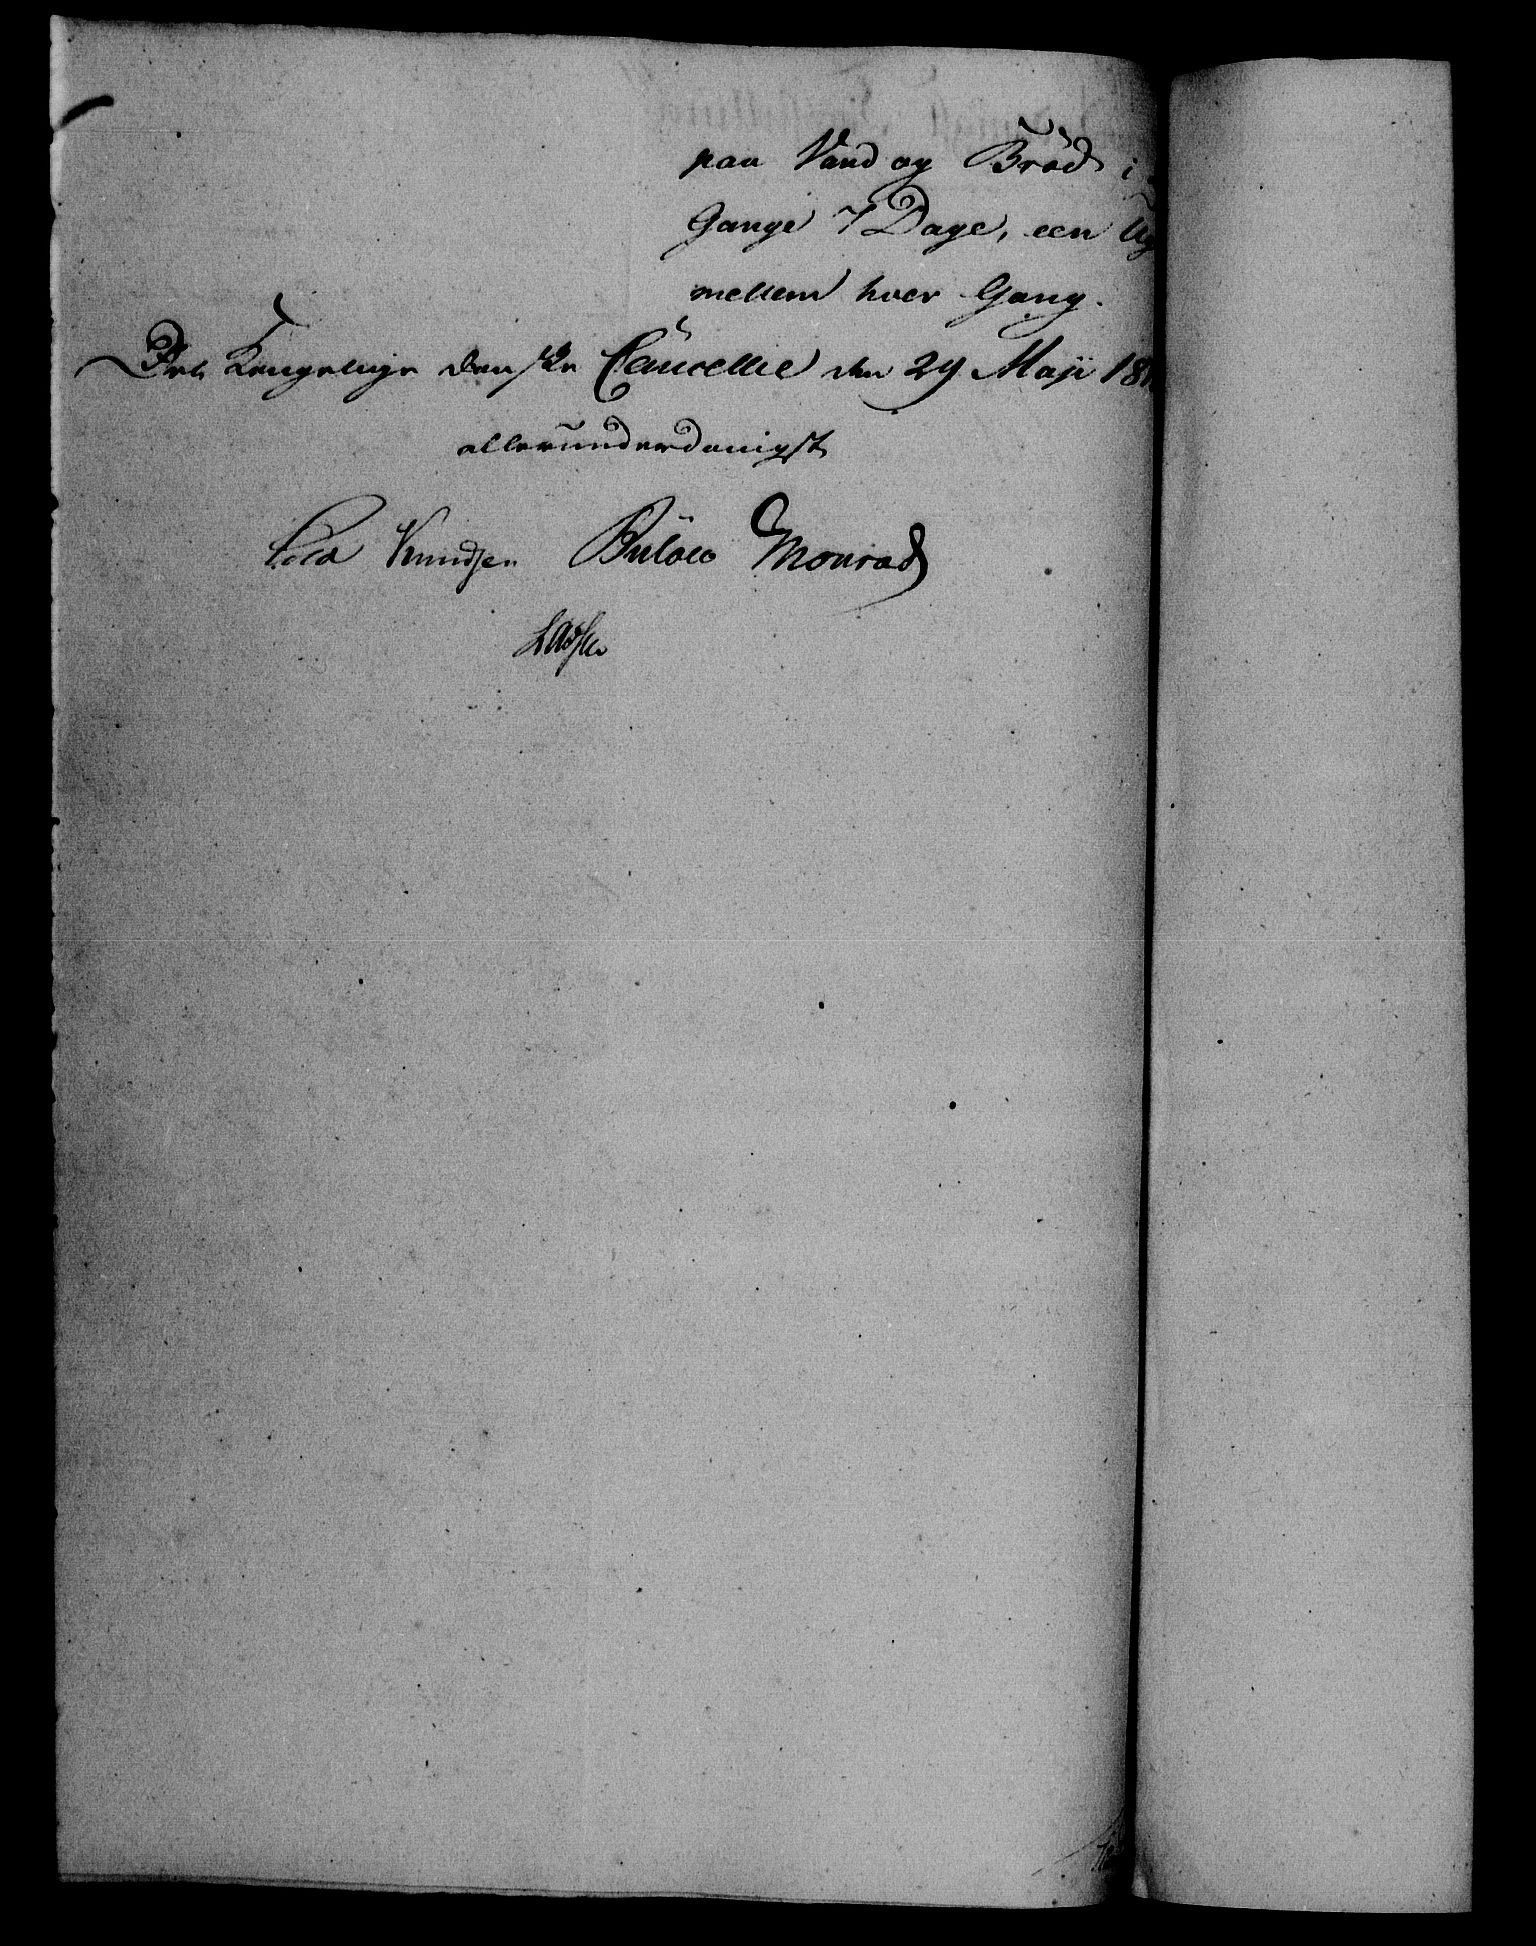 paa Vand og Bröd i
Gange 7 Dage, een
mellem hver Gang.
Det Kongelige danske Cancellie den 29 Maji 18
allerunderdanigst
Cold Knudsen Bülow Monrad